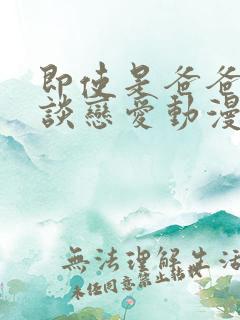 即使是爸爸
談戀愛動漫
無法理解生活
未經同意禁止轉載